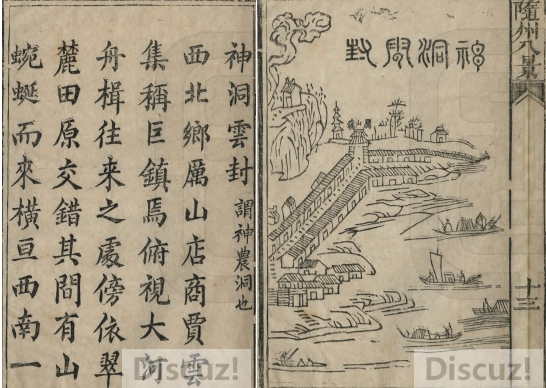 隨州八景
十三
神洞雲封
神洞雲封 謂神農洞也
西北鄉厲山店商賈雲
集稱巨鎮焉俯視大河
舟楫往来之處傍依翠
麓田原交錯其間有山
蜿蜒而來橫亘西南一
Discuz!
Discuz!